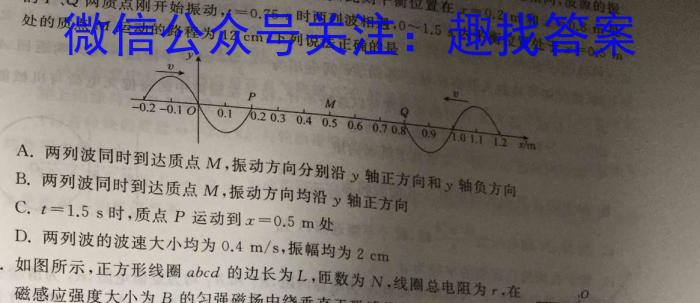 的 P、Q 两质点刚开始振动,t=0.75 s 时两列波相
处的质点 M 运动的路程为 12 cm,下列说法正确的是
微信公众号关注:趣找答案
y
v
v
P
M
Q
-0.2 -0.1 O 0.1 0.2 0.3 0.4 0.5 0.6 0.7 0.8 0.9 1.0 1.1 1.2 x/m
A. 两列波同时到达质点 M,振动方向分别沿 y 轴正方向和 y 轴负方向
B. 两列波同时到达质点 M,振动方向均沿 y 轴正方向
C. t=1.5 s 时,质点 P 运动到 x=0.5 m 处
D. 两列波的波速大小均为 0.4 m/s,振幅均为 2 cm
如图所示,正方形线圈 abcd 的边长为 L,匝数为 N,线圈总电阻为 r,在
磁感应强度大小为 B 的匀强磁场中绕垂直于